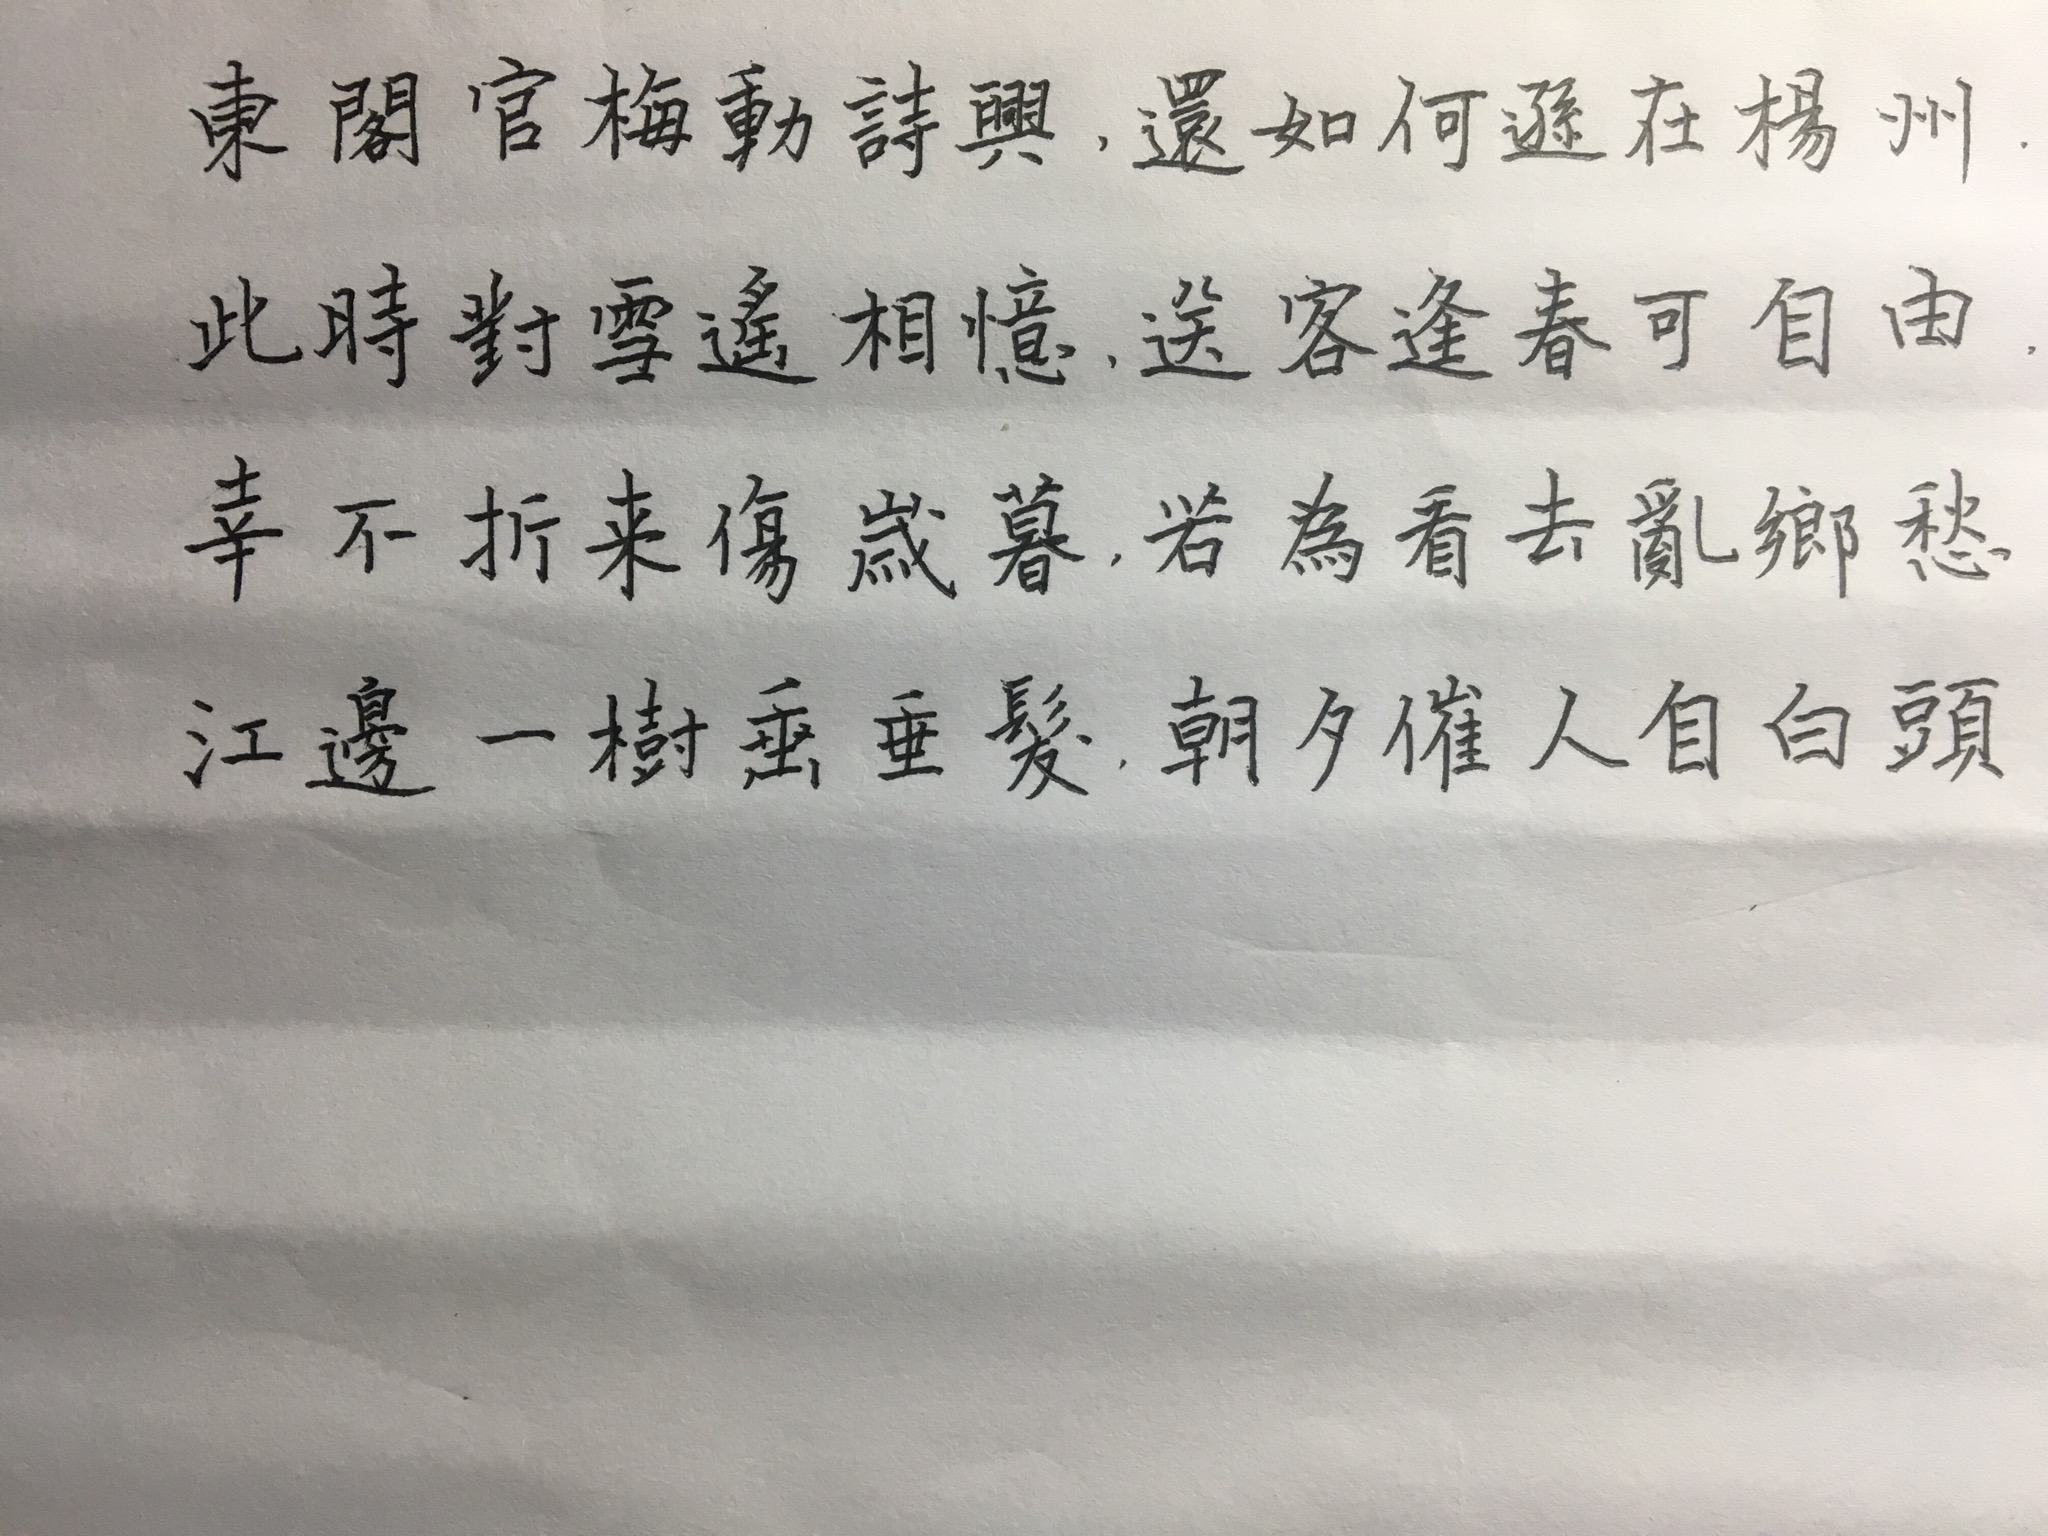 東閣官梅動詩興，還如何遜在楊州．
此時對雪遙相憶，送客逢春可自由．
幸不折来傷歲暮，若為看去亂鄉愁
江邊一樹垂垂髮，朝夕催人自白頭